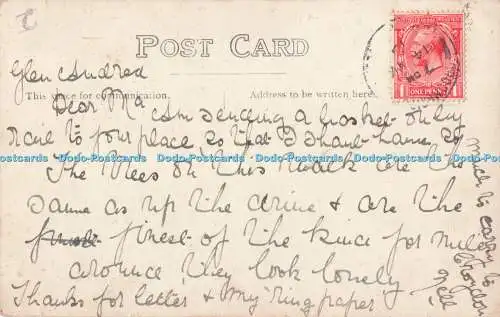 POST CARD
Glen Andred
This space for communication. Address to be written here.
Dear Ma Am sending a basket on by
rail to your place so that I shant have so
Dodo-Postcards Dodo-Postcards Dodo-Postcards Dodo-Postcards Dodo-Postcards
The trees on this walk are the
same as up the drive & are the
finest of the kind for miles
around they look lovely
Thanks for letter & my ring paper
much to carry to
Croydon
Nell
POSTAGE REVENUE
1 ONE PENNY 1